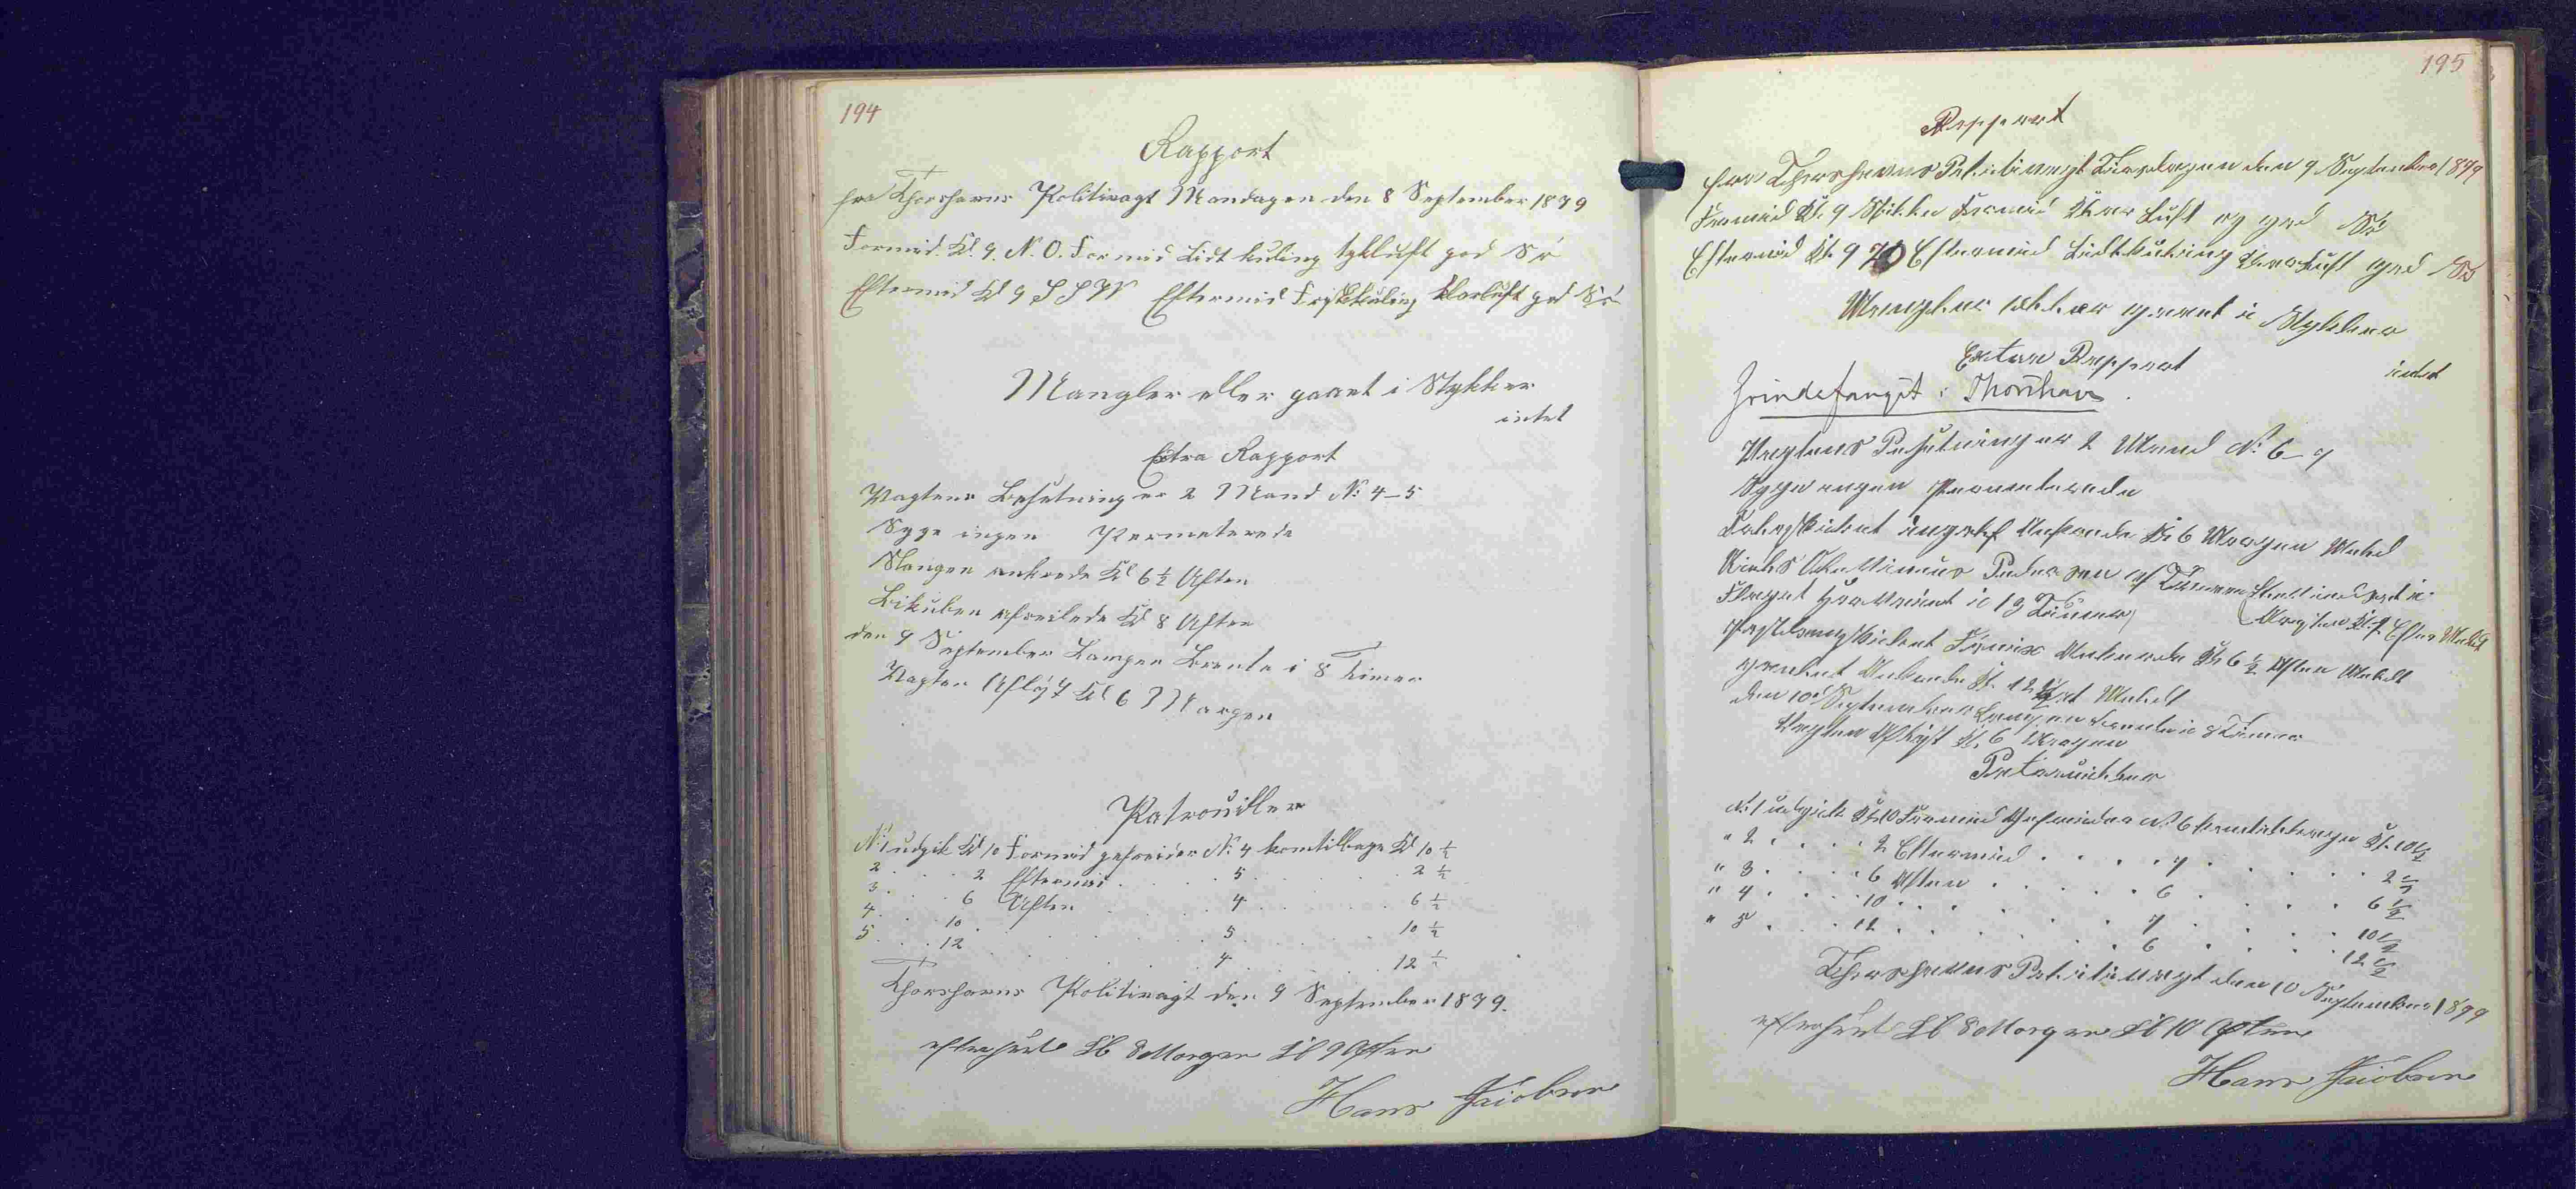 194
Rapport
fra Thorshavns Politivagt Mandagen den 8 September 1879
Formid. Kl. 9. N. O. Formid Lidt kuling tykluft god Sö
Eftermid Kl 9 SSW Eftermid Friskkuling klarluft god Sö
Mangler eller gaaet i Stykker
intet
Extra Rapport
Vagtens Besetning er 2 Mand No 4-5
Syge ingen Permeterede
Slangen ankrede Kl 6 1/2 Aften
Bikuben afseilede Kl 8 Aften
den 9 September Lampen Brente i 8 Timer
Vagten Aflöst Kl 6 Morgen
Patrouiller
No 1 udgik Kl 10 Formid gefreider No 4 kom tilbage Kl 10 1/2
2 . . . 2 Eftermid . . . 5 . . . 2 1/2
3 . . . 6 Aften . . . 4 . . . 6 1/2
4 . . . 10 . . . 5 . . . 10 1/2
5 . . . 12 . . . 4 . . . 12 1/2
Thorshavns Politivagt den 9 September 1879.
efterseet Kl 8 Morgen Kl 9 Aften
Hans Jacobsen
195
Rapport
fra Thorshavns Politivagt Tirsdagen den 9 September 1879
Formid Kl. 9 Stille Formid Klar Luft og god Sö
Eftermid Kl. 9 Eftermid Lidt kuling klar Luft god Sö
Mangler eller gaaet i Stykker
intet
Extra Rapport
Grindefangst i Thorshavn.
Vagtens Besetning er 2 Mand No 6-7
Syge ingen Permeterede
Kl 6 Morgen
Pedersen af
Vagten Kl. 9 Efter
Postdampskibet Fönix Ankrede Kl 6 1/2 Aften
Kl. 12
den 10 September Lampen brente i 8 Timer
Vagten Aflöst Kl. 6 Morgen
Patrouiller
No 1 udgik Kl 10 Formid Gefreider No 6 kom tilbage Kl. 10 1/2
" 2 . . . 2 Eftermid . . . 7 . . . 2 1/2
" 3 . . . 6 Aften . . . 6 . . . 6 1/2
" 4 . . . 10 . . . 7 . . . 10 1/2
" 5 . . . 12 . . . 6 . . . 12 1/2
Thorshavns Politivagt den 10 September 1879
efterseet Kl 8 Morgen Kl 10 Aften
Hans Jacobsen